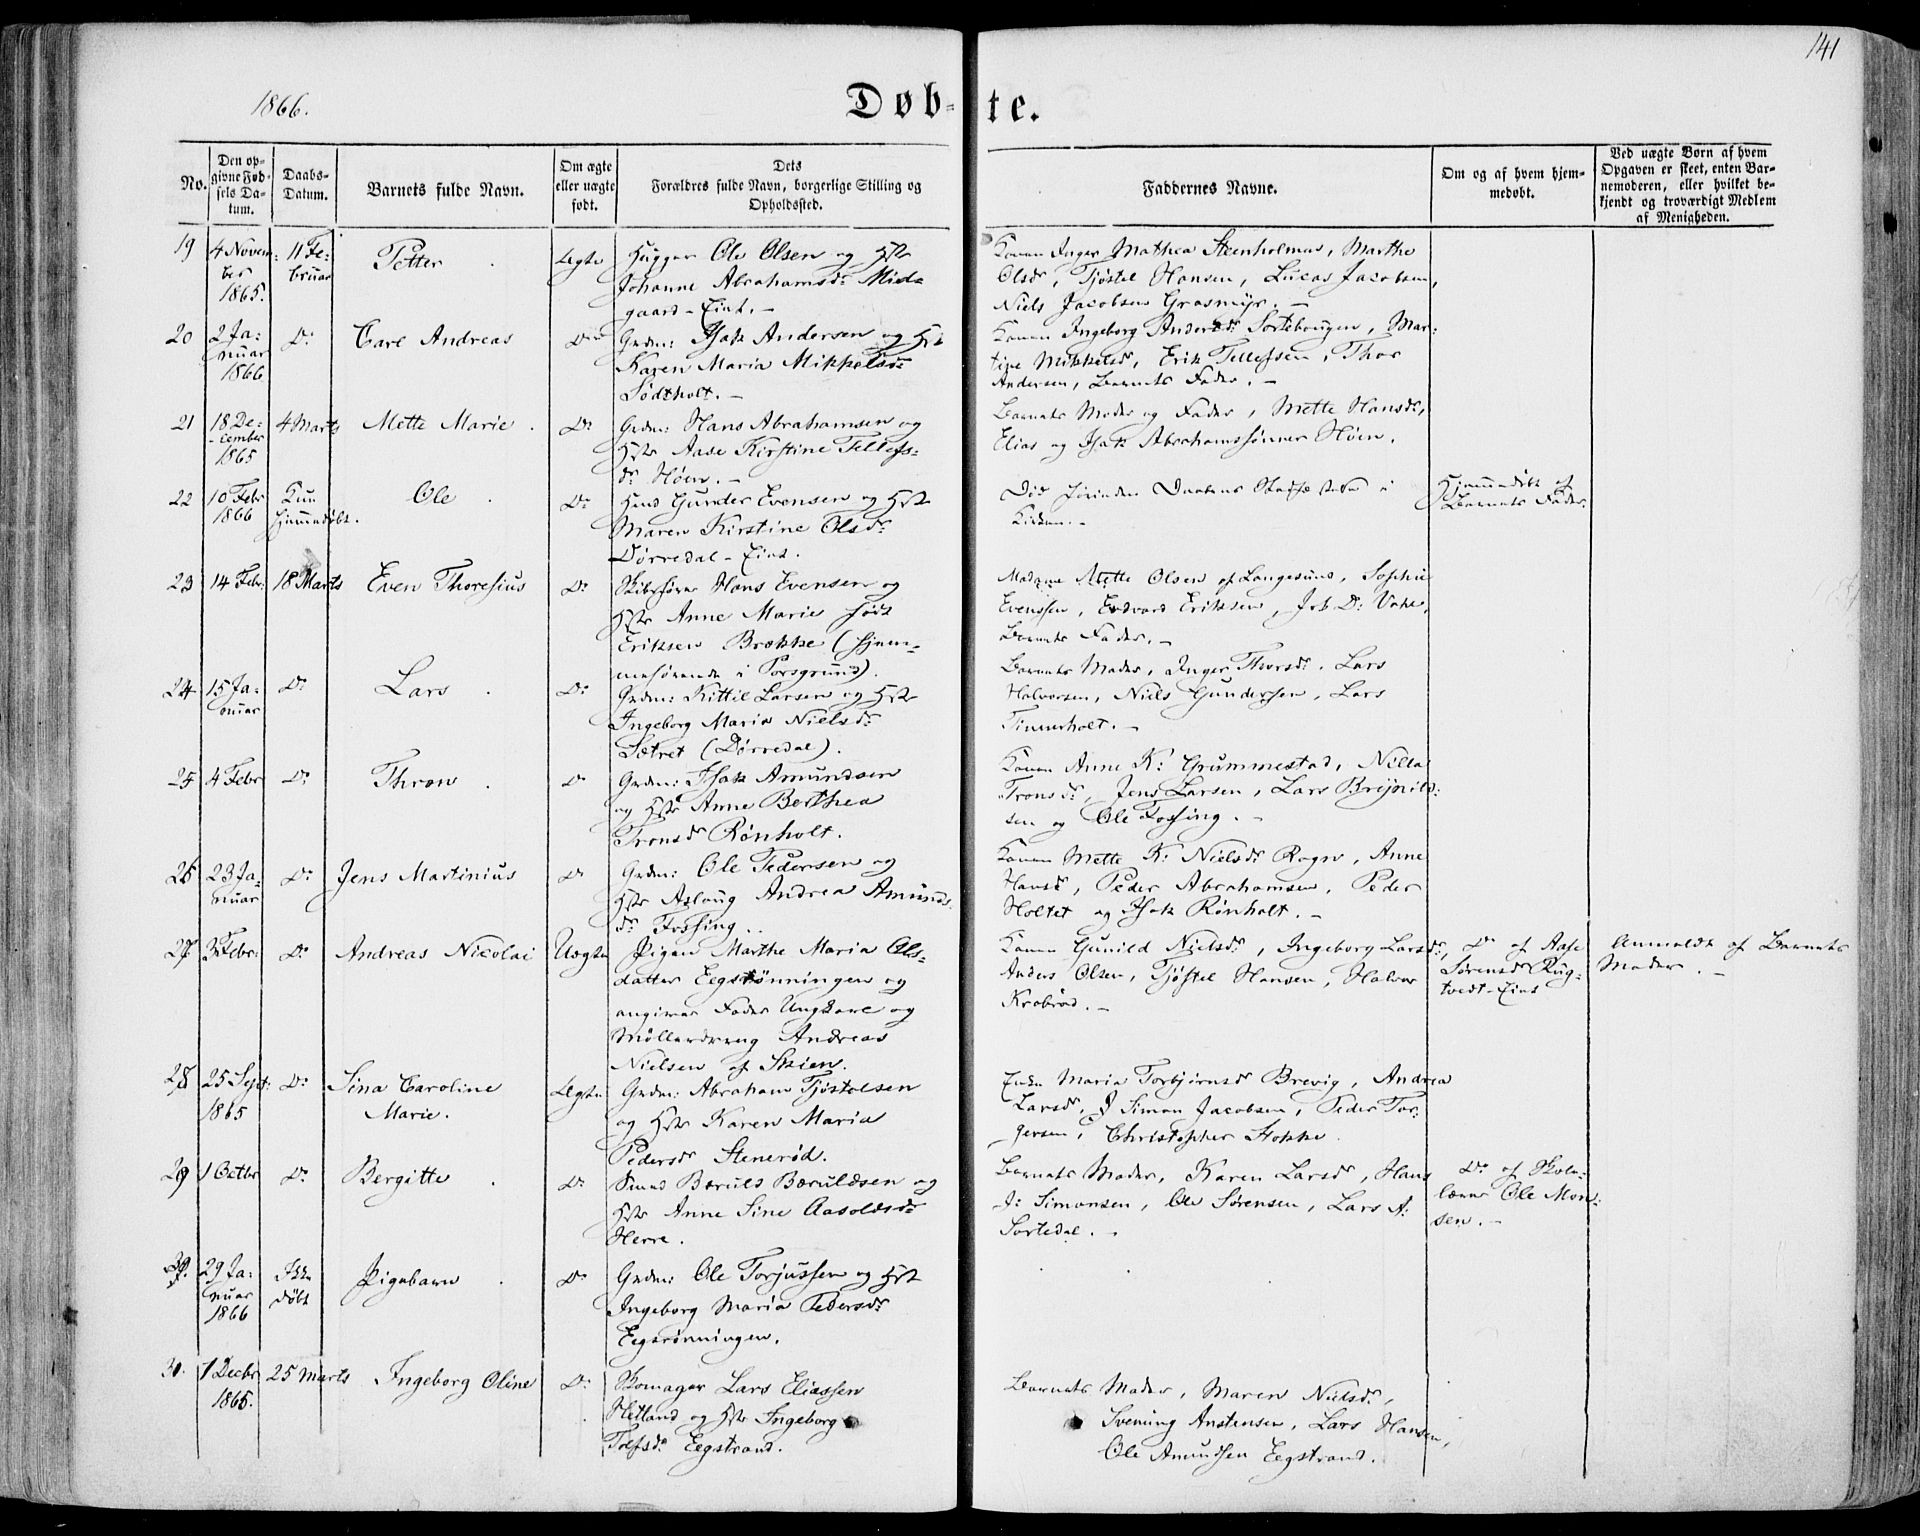 141
1866.
Døb-te.
No.
Den op-
givne Fød-
sels Da-
tum.
Daabs-
Datum.
Barnets fulde Navn.
Om ægte
eller uægte
født.
Dets
Forældres fulde Navn, borgerlige Stilling og
Opholdssted.
Faddernes Navne.
Om og af hvem hjem-
medøbt.
Ved uægte Børn af hvem
Opgaven er skeet, enten Bar-
nemoderen, eller hvilket be-
kjendt og troværdigt Medlem
af Menigheden.
19
4 Novem-
ber
1865.
11 Fe-
bruar
Petter
Ægte
Hugger Ole Olsen og Hst
Johanne Abrahamsdr Mid-
gaard-Eiet.-
Konen Inger Mathea Steenholmen, Marthe
Olsdr, Tjøstel Hansen, Lucas Jacobsen,
Niels Jacobsen Grasmyr.-
20
2 Ja-
nuar
1866
Do
Carl Andreas
Do
Grdm: Isak Andersen og Hst
Karen Maria Mikkelsdr
Sødtholt.-
Konen Ingeborg Andersdr, Mar-
tine Mikkelsdr, Erik Tellefsen, Thor
Andersen, Barnets Fader.-
21
18 De-
cember
1865
4 Marts
Mette Marie.
Do
Grdm: Hans Abrahamsen og
Hst Aase Kirstine Tellefs-
dr Høen.-
Barnets Moder og Fader, Mette Hansdr,
Elias og Isak Abrahamssønner Høen.
22
10 Febr
1866
Kun
hjemmedøbt.
Ole
Do
Gunder Evensen og Hst
Maren Kirstine Olsdr
Dørredal-Eiet.
Død førinden Daabens Stadfæstelse i
Kirken.-
Hjemmedøbt af
Barnets Fader.
23
14 Febr:
18 Marts
Even Thoresius
Do
Skibsfører Hans Evensen og
Hst Anne Marie født
Eriksen Brække (hjem-
mehørende i Porsgrund).
Madame Mette Olsen af Langesund, Sophie
Evenssen, Edvard Eriksen,
Barnets Fader.-
24
15 Ja-
nuar
Do
Lars
Do
Grdm: Kittil Larsen og Hst
Ingeborg Maria Nielsdr
Sætret (Dørredal).
Barnets Moder, Inger Thorsdr, Lars
Halvorsen, Niels Gundersen, Lars
Timmerholt.-
25
4 Febr
Do
Thron
Do
Grdm: Isak Amundsen
og Hst Anne Berthea
Tronsdr Rønholt.
Konen Anne K: Grummestad,
Tronsdr, Jens Larsen, Lars Brynild-
sen og Ole Fossing.-
26
23 Ja-
nuar
Do
Jens Martinius
Do
Grdm: Ole Pedersen og
Hst Aslaug Andrea Amunds-
dr Fossing.
Konen Mette K: Nielsdr Rogn, Anne
Hansdr, Peder Abrahamsen, Peder
Holtet og Isak Rønholt.-
27
3 Febr:
Do
Andreas Nicolai
Uægte
Pigen Marthe Maria Ols-
datter Eegsrønningen og
angiven Fader Ungkarl og
Møllerdreng Andreas
Nielsen af Skien.
Konen Gunild Nielsdr, Ingeborg Larsdr,
Anders Olsen, Tjøstel Hansen, Halvor
Krobrød.-
Do af Aase
Sørensdr Rug-
tvedt-Eiet
Anmeldt af Barnets
Moder.-
28
25 Sept:
1865
Do
Sina Caroline
Marie.
Ægte
Grdm: Abraham Tjøstolsen
og Hst Karen Maria
Pedersdr Stenerød.
Enke Maria Torbjørnsdr Brevig, Andrea
Larsdr, Simon Jacobsen, Peder Tor-
gersen, Christopher Stokke.
29
1 Octbr
Do
Bergitte
Do
Smed Bæruld Bæruldsen og
Hst Anne Sine Aasoldsdr
Herre.
Barnets Moder, Karen Larsdr, Hans
J: Simonsen, Ole Sørensen, Lars A:
Sortedal.-
Do af Skole-
lærer Ole Mon-
sen.-
29 Ja-
nuar
1866
Ikke
døbt
Pigebarn
Do
Grdm: Ole Torjussen og Hst
Ingeborg Maria Pedersdr
Eegsrønningen.
30.
1 Decbr
1865.
25 Marts
Ingeborg Oline
Do
Skomager Lars Eliassen
Hetland og Hst Ingeborg
Eegstrand.
Barnets Moder, Maren Nielsdr,
Svenung Anstensen, Lars Hansen,
Ole Amundsen Eegstrand.